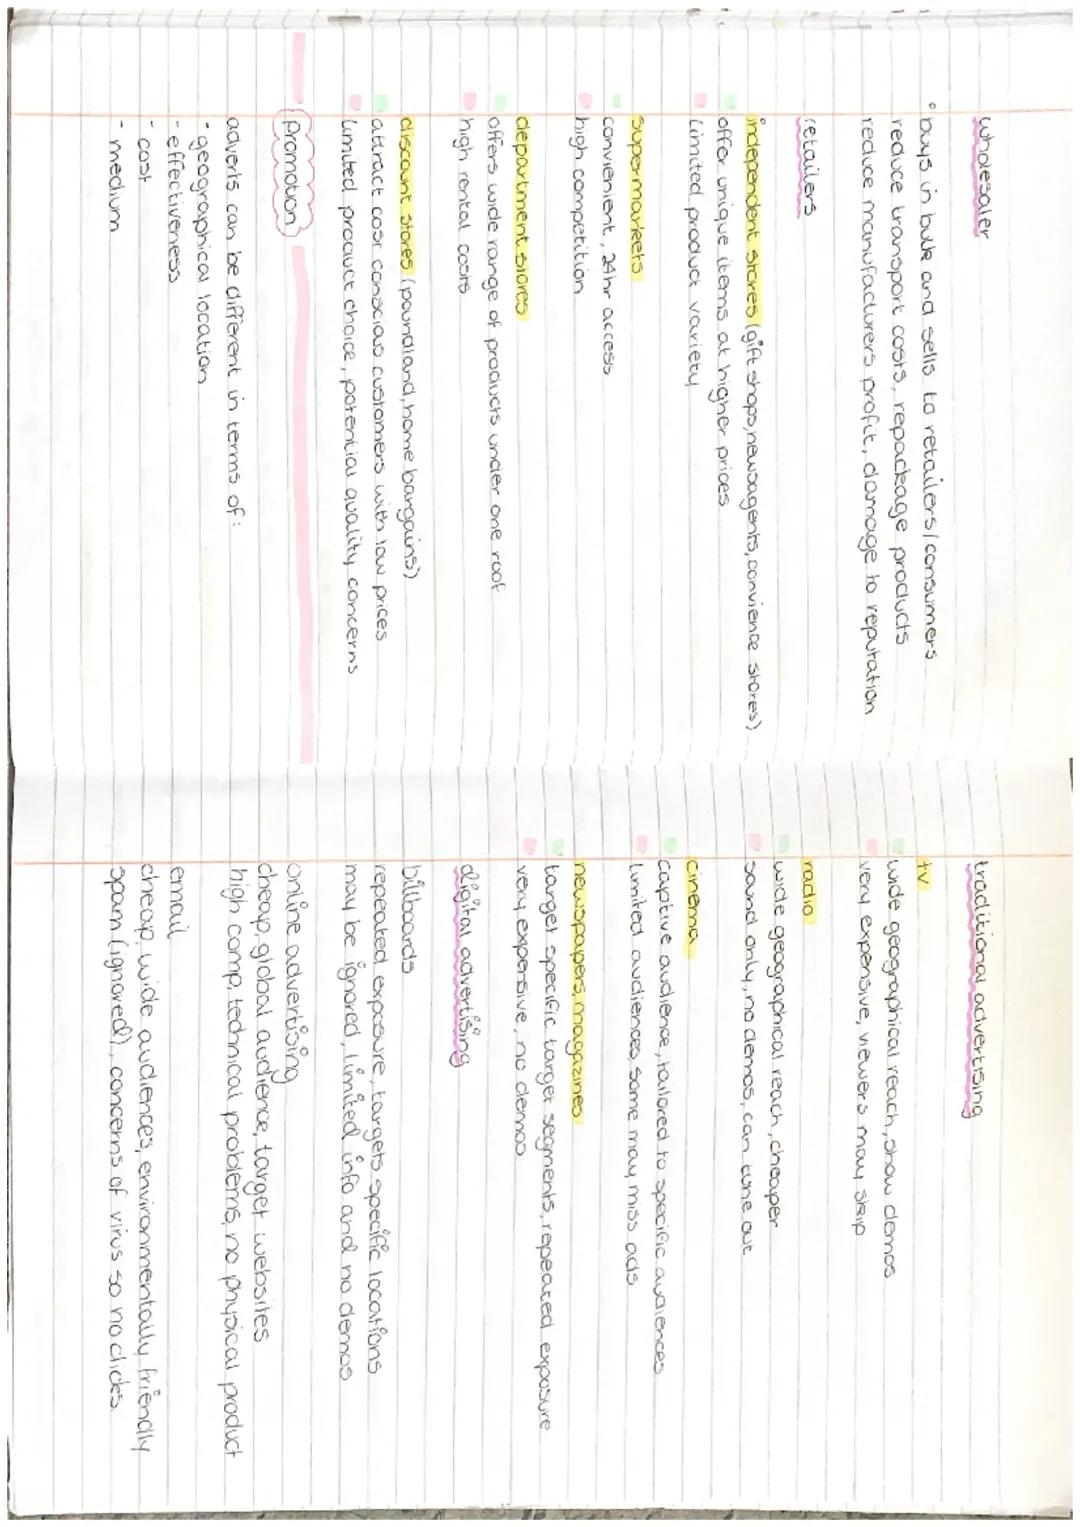 wholesaler
buys in bulk and sells to retailers/consumers
reduce transport costs, repackage products
reduce manufacturers profit, damage to reputation
retailers
independent stores (gift shops, newsagents, convience stores)
offer unique items at higher prices
limited product variety
supermarkets
convienient, 24hr access
high competition
department stores
offers wide range of products under one roof
high rental costs
discount stores (poundland, home bargains)
attract cost conscious customers with low prices
limited product choice, potential quality concerns
promotion
adverts can be different in terms of:
- geographical location
- effectiveness
- cost
- medium
traditional advertising
tv
wide geographical reach, show demos
very expensive, viewers may skip
radio
wide geographical reach, cheaper
sound only, no demos, can tune out
cinema
captive audience, tailored to specific audiences
limited audiences, some may miss ads
newspapers, magazines
target specific target segments, repeated exposure
very expensive, no demos
digital advertising
billboards
repeated exposure, targets specific locations
may be ignored, limited info and no demos
online advertising
cheap, global audience, target websites
high comp, technical problems, no physical product
email
cheap, wide audiences, environmentally friendly
spam (ignored), concerns of virus so no clicks.